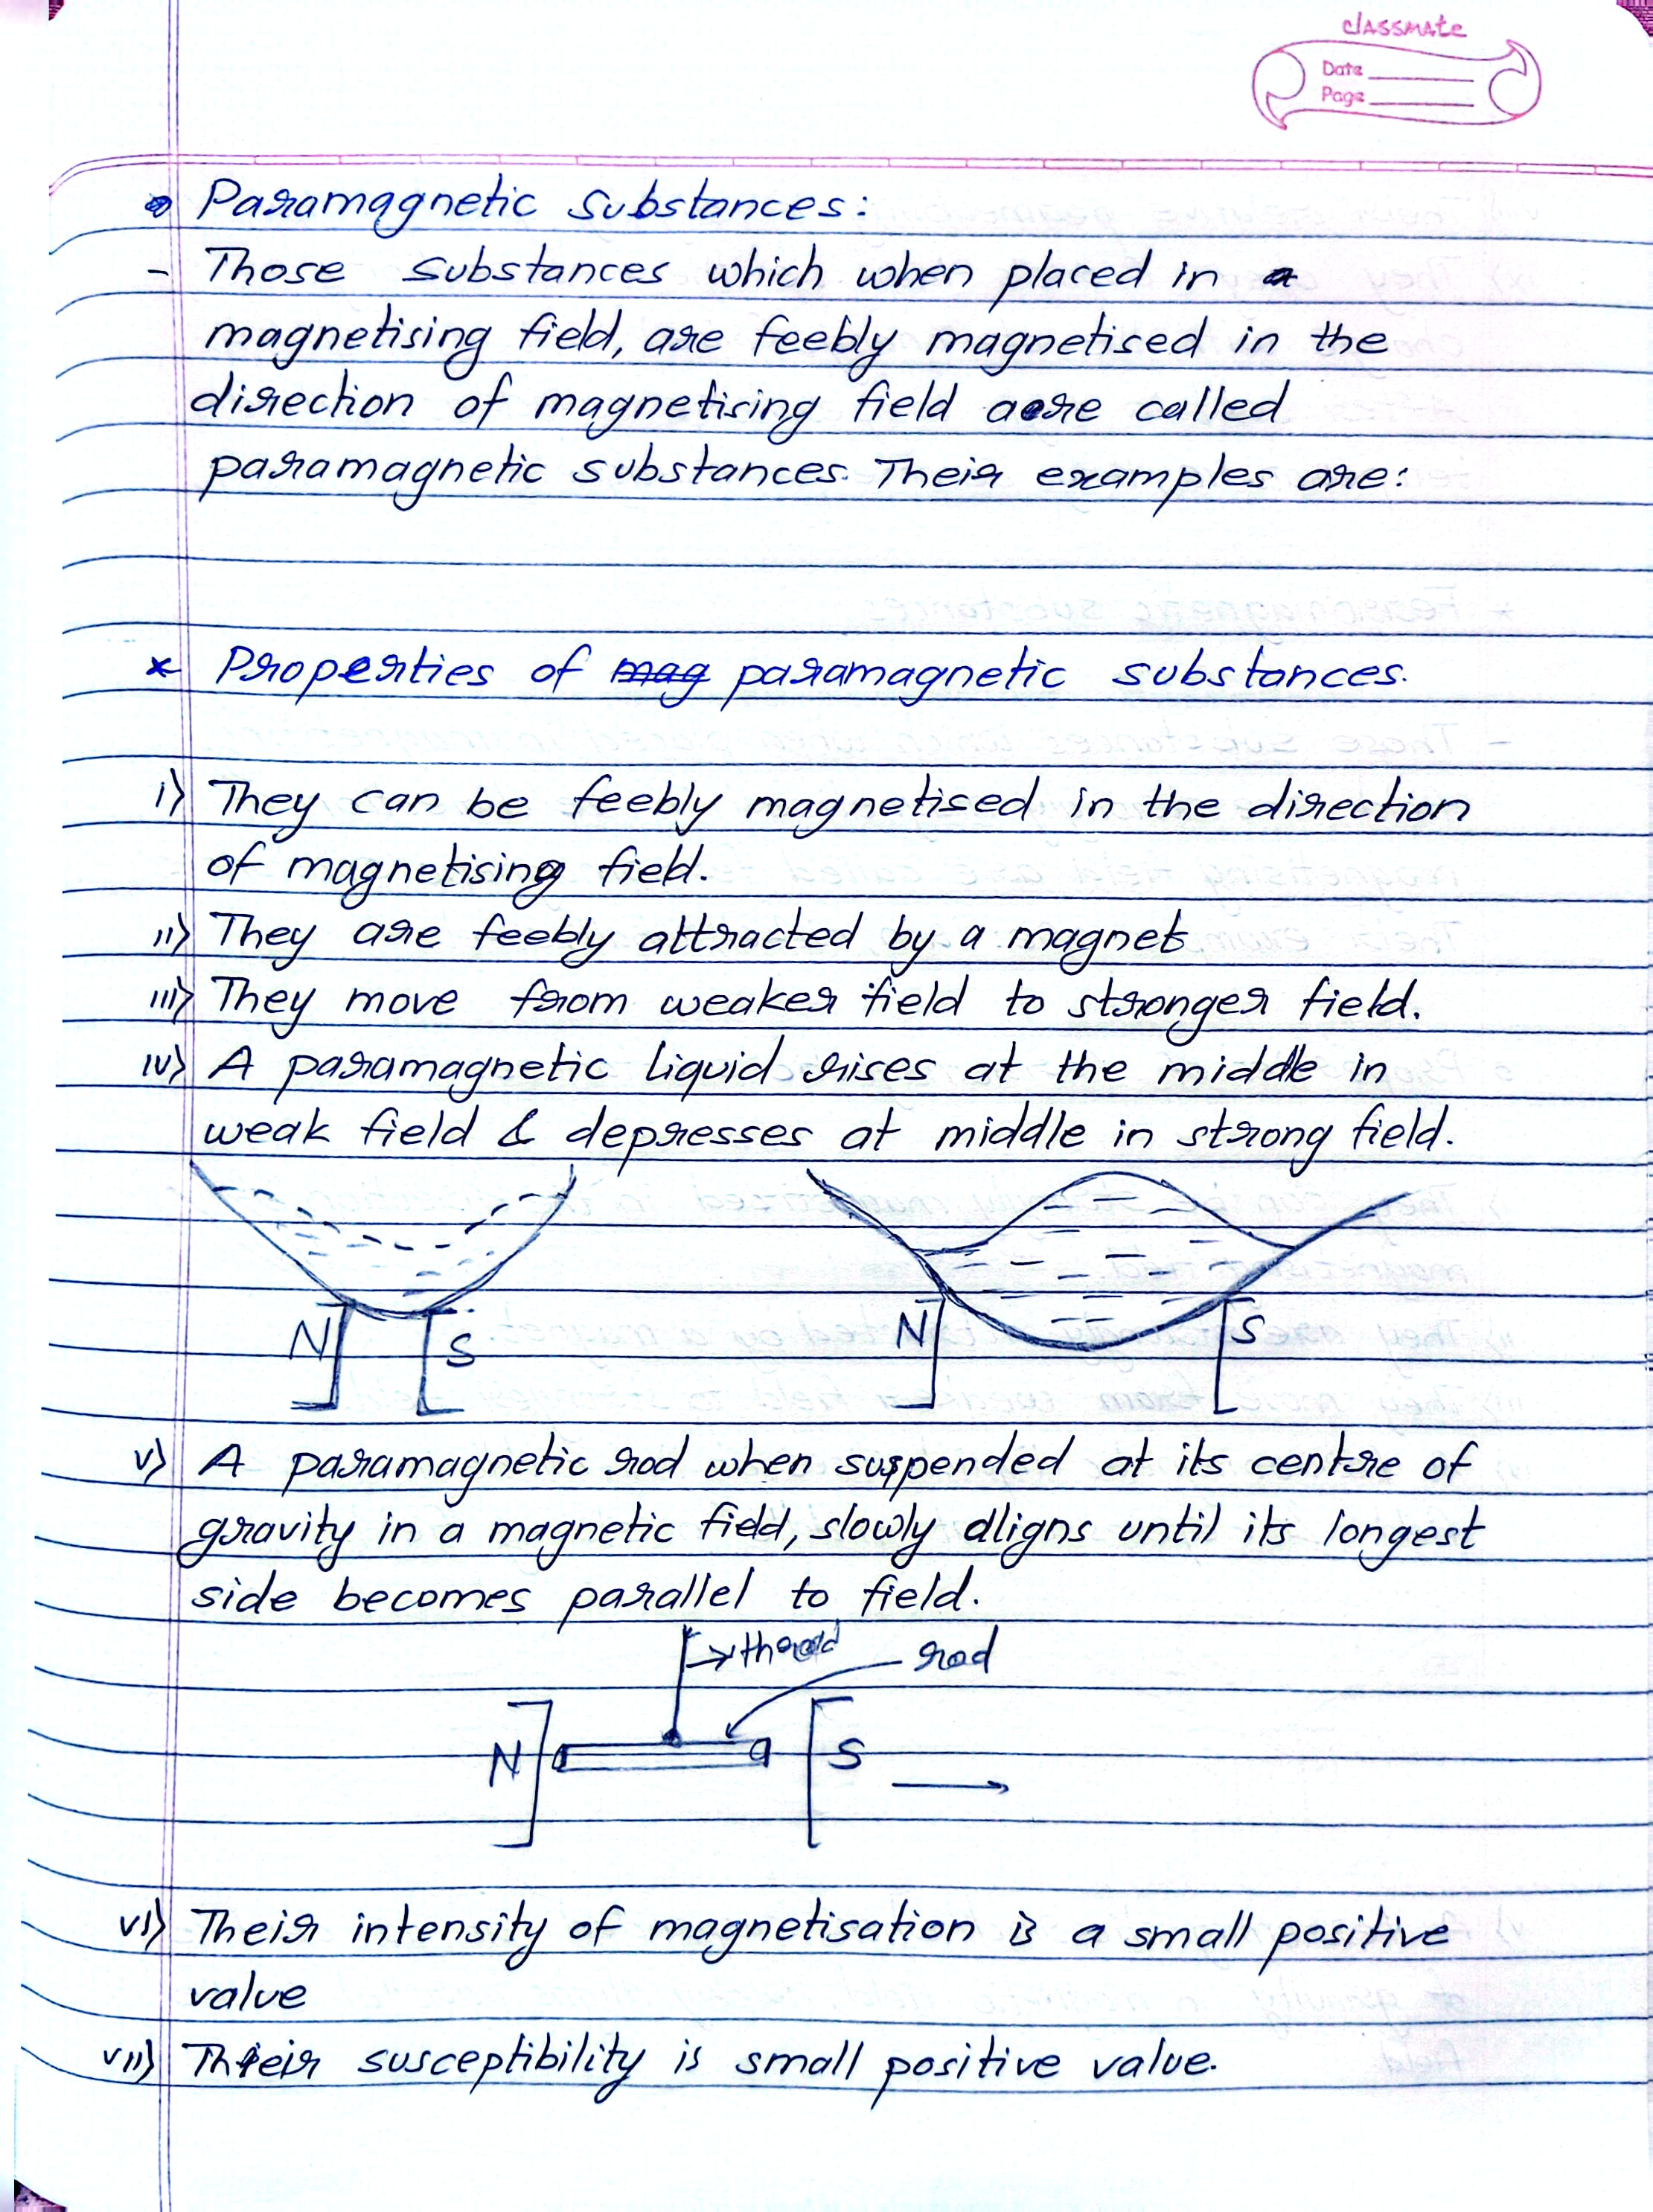 classmate
Date
Page
Paramagnetic Substances:
- Those substances which when placed in a
magnetising field, are feebly magnetised in the
direction of magnetising field are called
paramagnetic substances. Their examples are:
* Properties of mag paramagnetic substances.
i) They can be feebly magnetised in the direction
of magnetising field.
ii) They are feebly attracted by a magnet
iii) They move from weaker field to stronger field.
iv) A paramagnetic liquid rises at the middle in
weak field & depresses at middle in strong field.
N S N S
v) A paramagnetic rod when suspended at its centre of
gravity in a magnetic field, slowly aligns until its longest
side becomes parallel to field.
→ thread rod
N S
vi) Their intensity of magnetisation is a small positive
value
vii) Their susceptibility is small positive value.